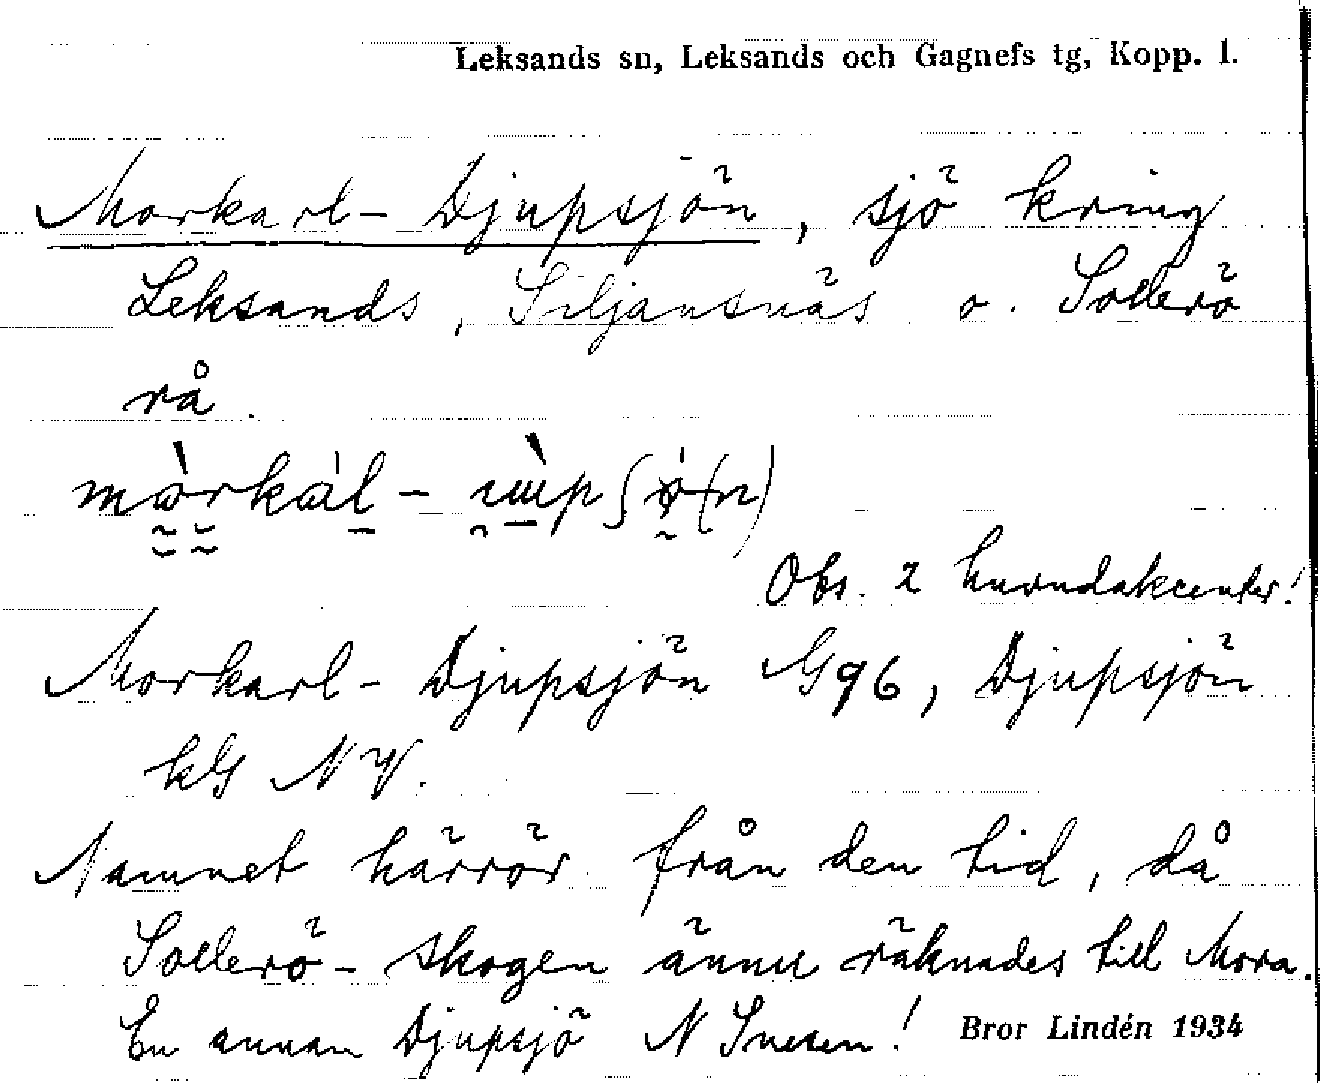 Leksands sn, Leksands och Gagnefs tg, Kopp. l.
Morkarl-Djupsjön, sjö kring
Leksands, Siljansnäs o. Sollerö
rå.
Obs. 2 huvudakcenter!
Morkarl-Djupsjön G96, Djupsjön
kG NV.
Namnet härrör från den tid, då
Sollerö-skogen ännu räknades till Mora.
En annan Djupsjö N Snesen!
Bror Lindén 1934